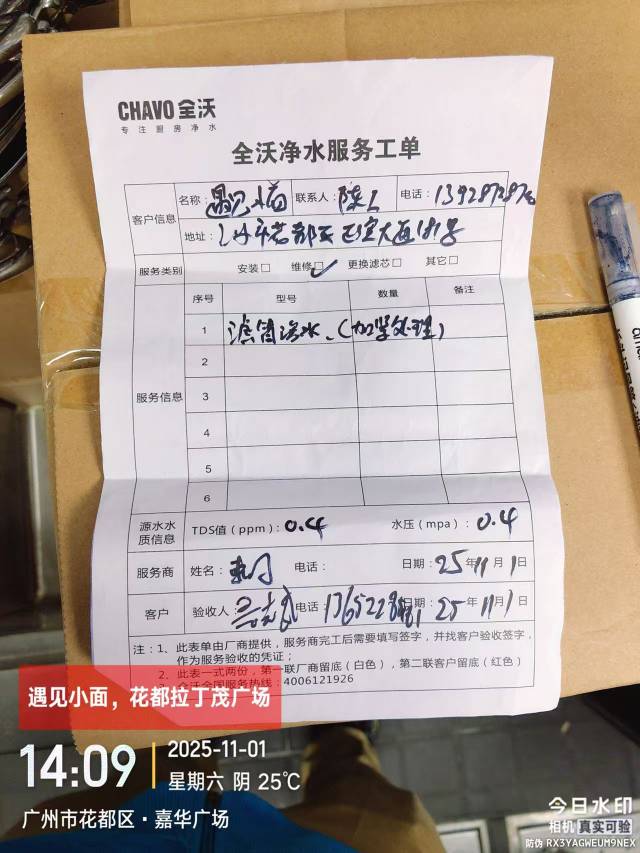 CHAVO 全沃
专注厨房净水
全沃净水服务工单
客户信息
名称: 遇见小面 联系人: 陈工 电话:
地址: 广州市花都区 大道181号
服务类别 安装□ 维修☑ 更换滤芯□ 其它□
服务信息
序号 型号 数量 备注
1 滤筒渗水、(加紧处理)
2
3
4
5
6
源水水质信息 TDS值(ppm): 0.4 水压(mpa): 0.4
服务商 姓名: 电话: 日期: 25年11月1日
客户 验收人: 电话 日期: 25年11月1日
注:1、此表单由厂商提供,服务商完工后需要填写签字,并找客户验收签字,
作为服务验收的凭证;
2、此表一式两份,第一联厂商留底(白色),第二联客户留底(红色)
全沃全国服务热线:4006121926
遇见小面,花都拉丁茂广场
14:09
2025-11-01
星期六 阴 25℃
广州市花都区·嘉华广场
今日水印
相机 真实可验
防伪 RX3YAGWEUM9NEX